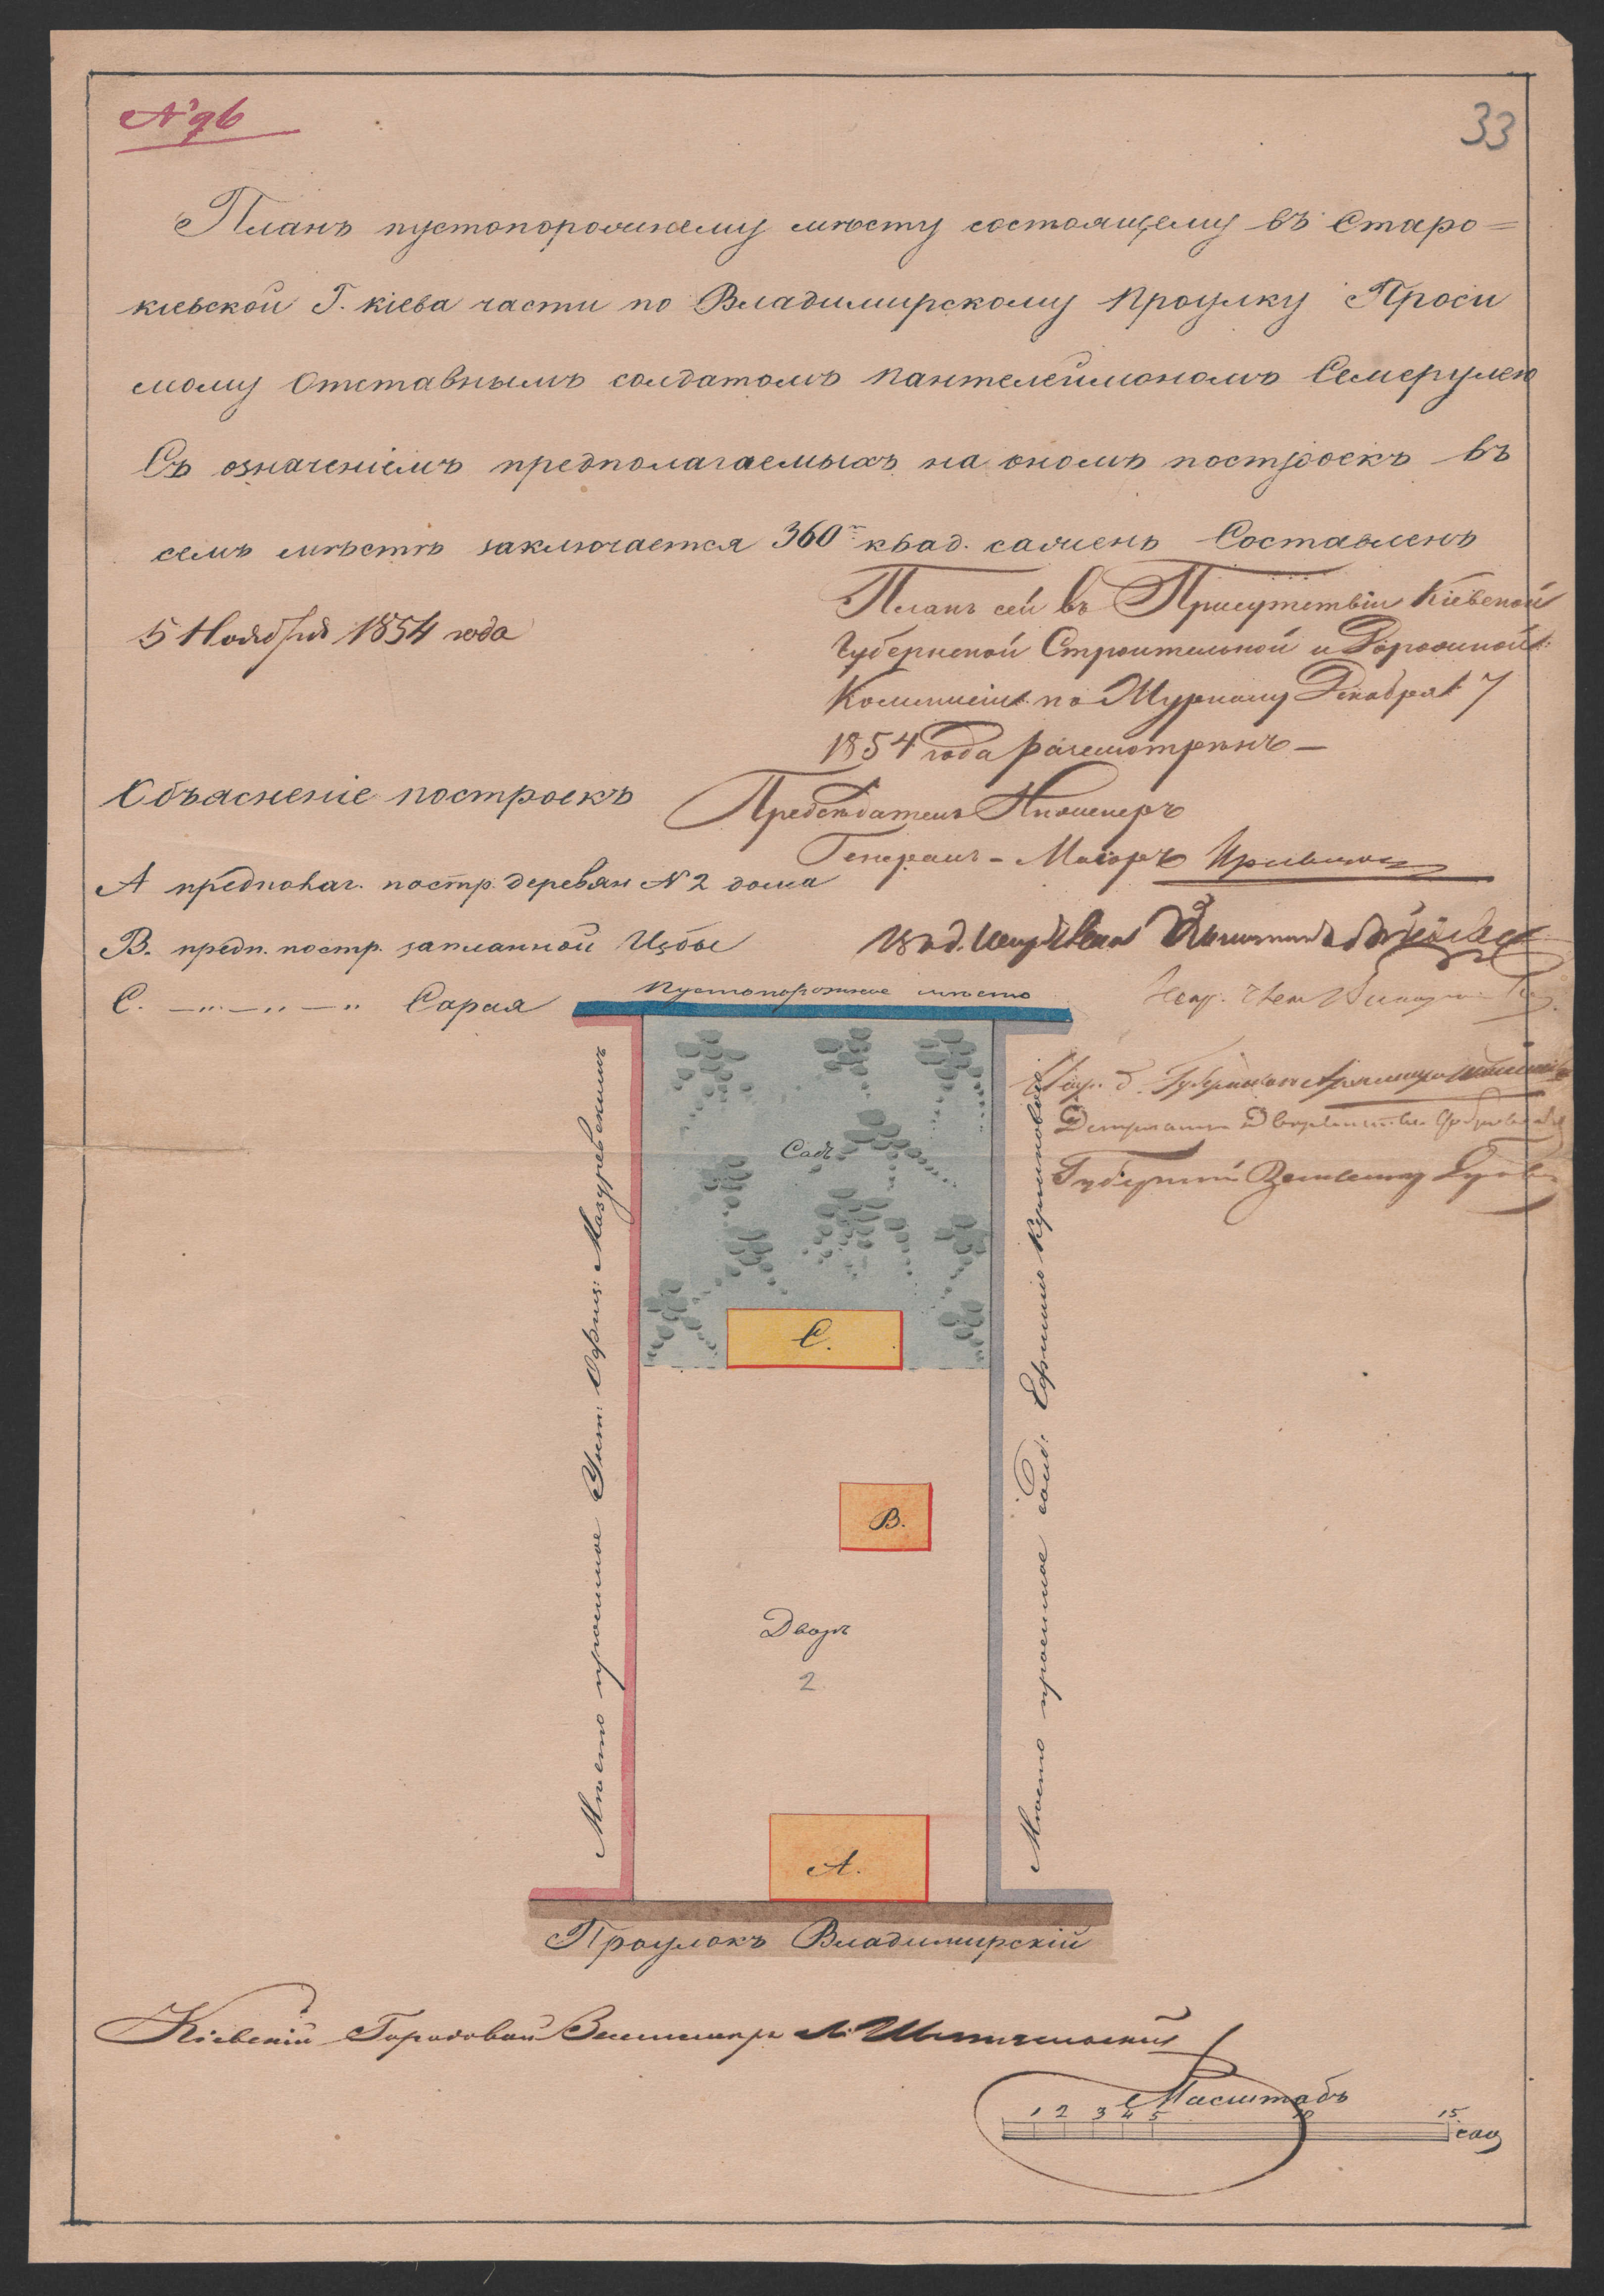 № 96
33
Планъ пустопорожнему мѣсту состоящему въ Старо=
кіевской Г. Кіева части по Владимирскому Проулку Проси
мому Отставнымъ солдатомъ Пантелеймономъ Семерулею
Съ означеніемъ предполагаемыхъ на ономъ построекъ въ
семъ мѣстѣ заключается 360 квад. саженъ Составленъ
5 Ноября 1854 года
Планъ сей въ Присутствіи Кіевской
Губернской Строительной и Дорожной
Коммисіи по Журналу Декабря 7
1854 года разсмотренъ —
Предсѣдатель Инженеръ
Генералъ-Маіоръ
Объясненіе построекъ
А предполаг. постр. деревян N 2 дома
В. предп. постр. запланной Избы
С. —„—„—„ Сарая
Пустопорожнее мѣсто
Садъ
С.
В.
Дворъ
2
А.
Мѣсто прошмое Унт: Офиц: Мазуревскимъ
Мѣсто прошмое солд: Ефимомъ
Проулокъ Владимирскій
Кіевскій Городовой Землемеръ
Масштабъ
1 2 3 4 5 10 15 саж